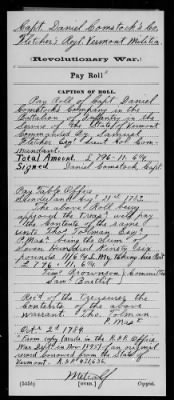 Capt. Daniel Comstock's Co.
Fletcher's Regt. Vermont Militia.
(Revolutionary War.)
Pay Roll
CAPTION OF ROLL.
Pay Roll of Capt. Daniel
Comstocks Company in the
Battalion of Infantry in the
Service of the State of Vermont
Commanded By Samuel
Fletcher Esqr. Lieut Col Com-
mandant.
Total Amount, £ 796-11-6¼
Signed Daniel Comstock Capt.
Pay Table Office
Sunderland Augt 1782.
The above Roll being
approved the Treasr will pay
the Contents of the same
unto Thos Tolman Esqr
P. Mastr being the Sum of
Seven hundred Ninety Six
pounds 11/6¼ L. My taking his Rect
£ 796-11-6¼.
Timy Brownson } Committee
Saml Bartlit
Recd of the Treasurer the
Contents of the above
warrant. Thos Tolman
P. Mas
Octr 2d 1784
From copy (made in the R. & P. Office,
War Dept. in Nov 1897) of an original
record borrowed from the State of
Vermont. R. & P.
Metcalf
[OVER.]
Copyist.